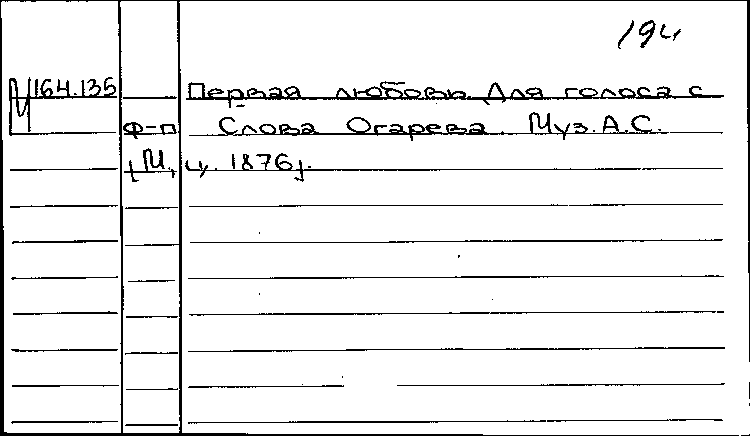 194
М164.135 Первая любовь. Для голоса с
ф-п. Слова Огарева. Муз. А.С.
[М., ц. 1876].